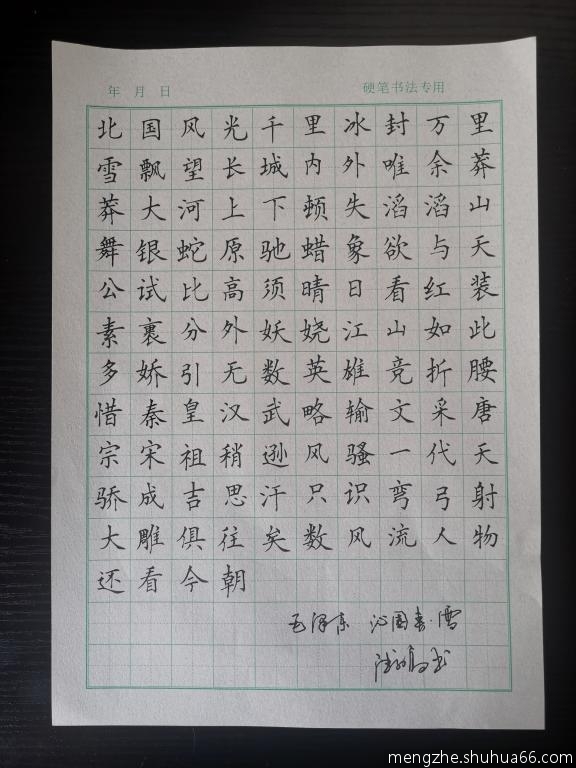 年 月 日 硬笔书法专用
北国风光千里冰封万里
雪飘望长城内外唯余莽
莽大河上下顿失滔滔山
舞银蛇原驰蜡象欲与天
公试比高须晴日看红装
素裹分外妖娆江山如此
多娇引无数英雄竞折腰
惜秦皇汉武略输文采唐
宗宋祖稍逊风骚一代天
骄成吉思汗只识弯弓射
大雕俱往矣数风流人物
还看今朝
毛泽东 沁园春·雪
mengzhe.shuhua66.com